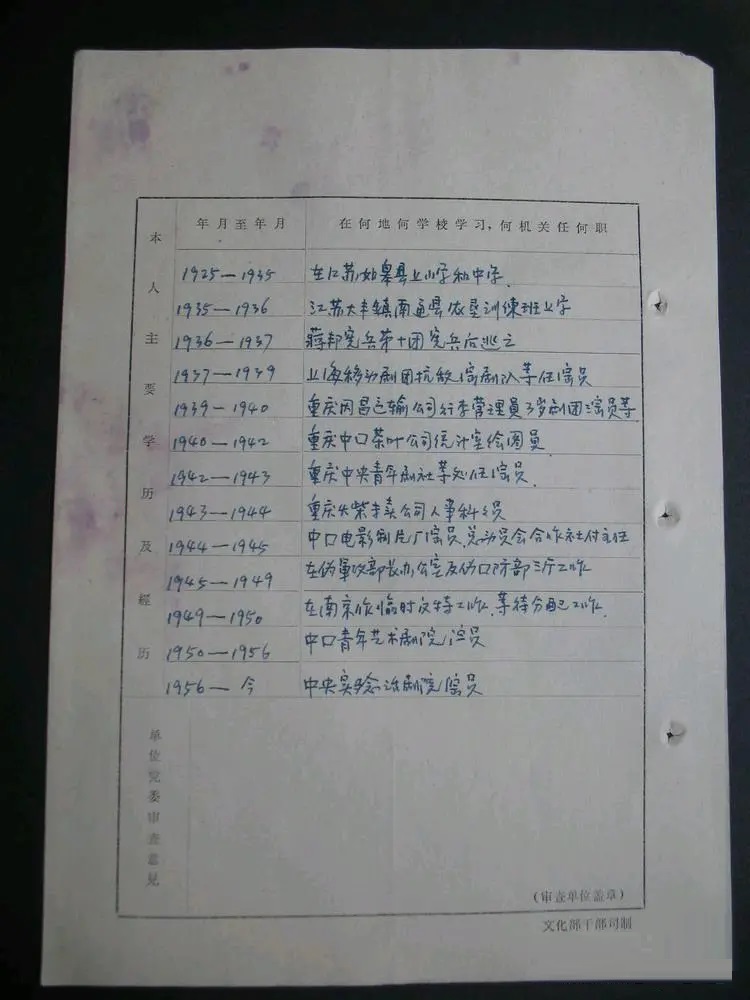 本人主要学历及經历
年月至年月 在何地何学校学习，何机关任何职
1925—1935 在江苏如皋县上小学和中学.
1935—1936 江苏大丰镇南通县农垦训练班上学
1936—1937 蔣邦宪兵第十团宪兵后逃亡
1937—1939 上海移动剧团抗敌演剧队等任演员
1939—1940 重庆 昌运输公司行李管理員 剧团演员等
1940—1942 重庆中口茶叶公司统计室绘图員
1942—1943 重庆中央青年剧社等处任演员.
1943—1944 重庆火柴专卖公司人事科 员
1944—1945 中口电影制片厂演员.总动员会合作社付主任
1945—1949 在伪軍政部长办公室及伪口防部三厅工作
1949—1950 在南京作临时 工作.等待分配工作.
1950—1956 中口青年艺术剧院演员
1956—今 中央实验话剧院演员
单位党委审查意見
（审查单位盖章）
文化部干部司制